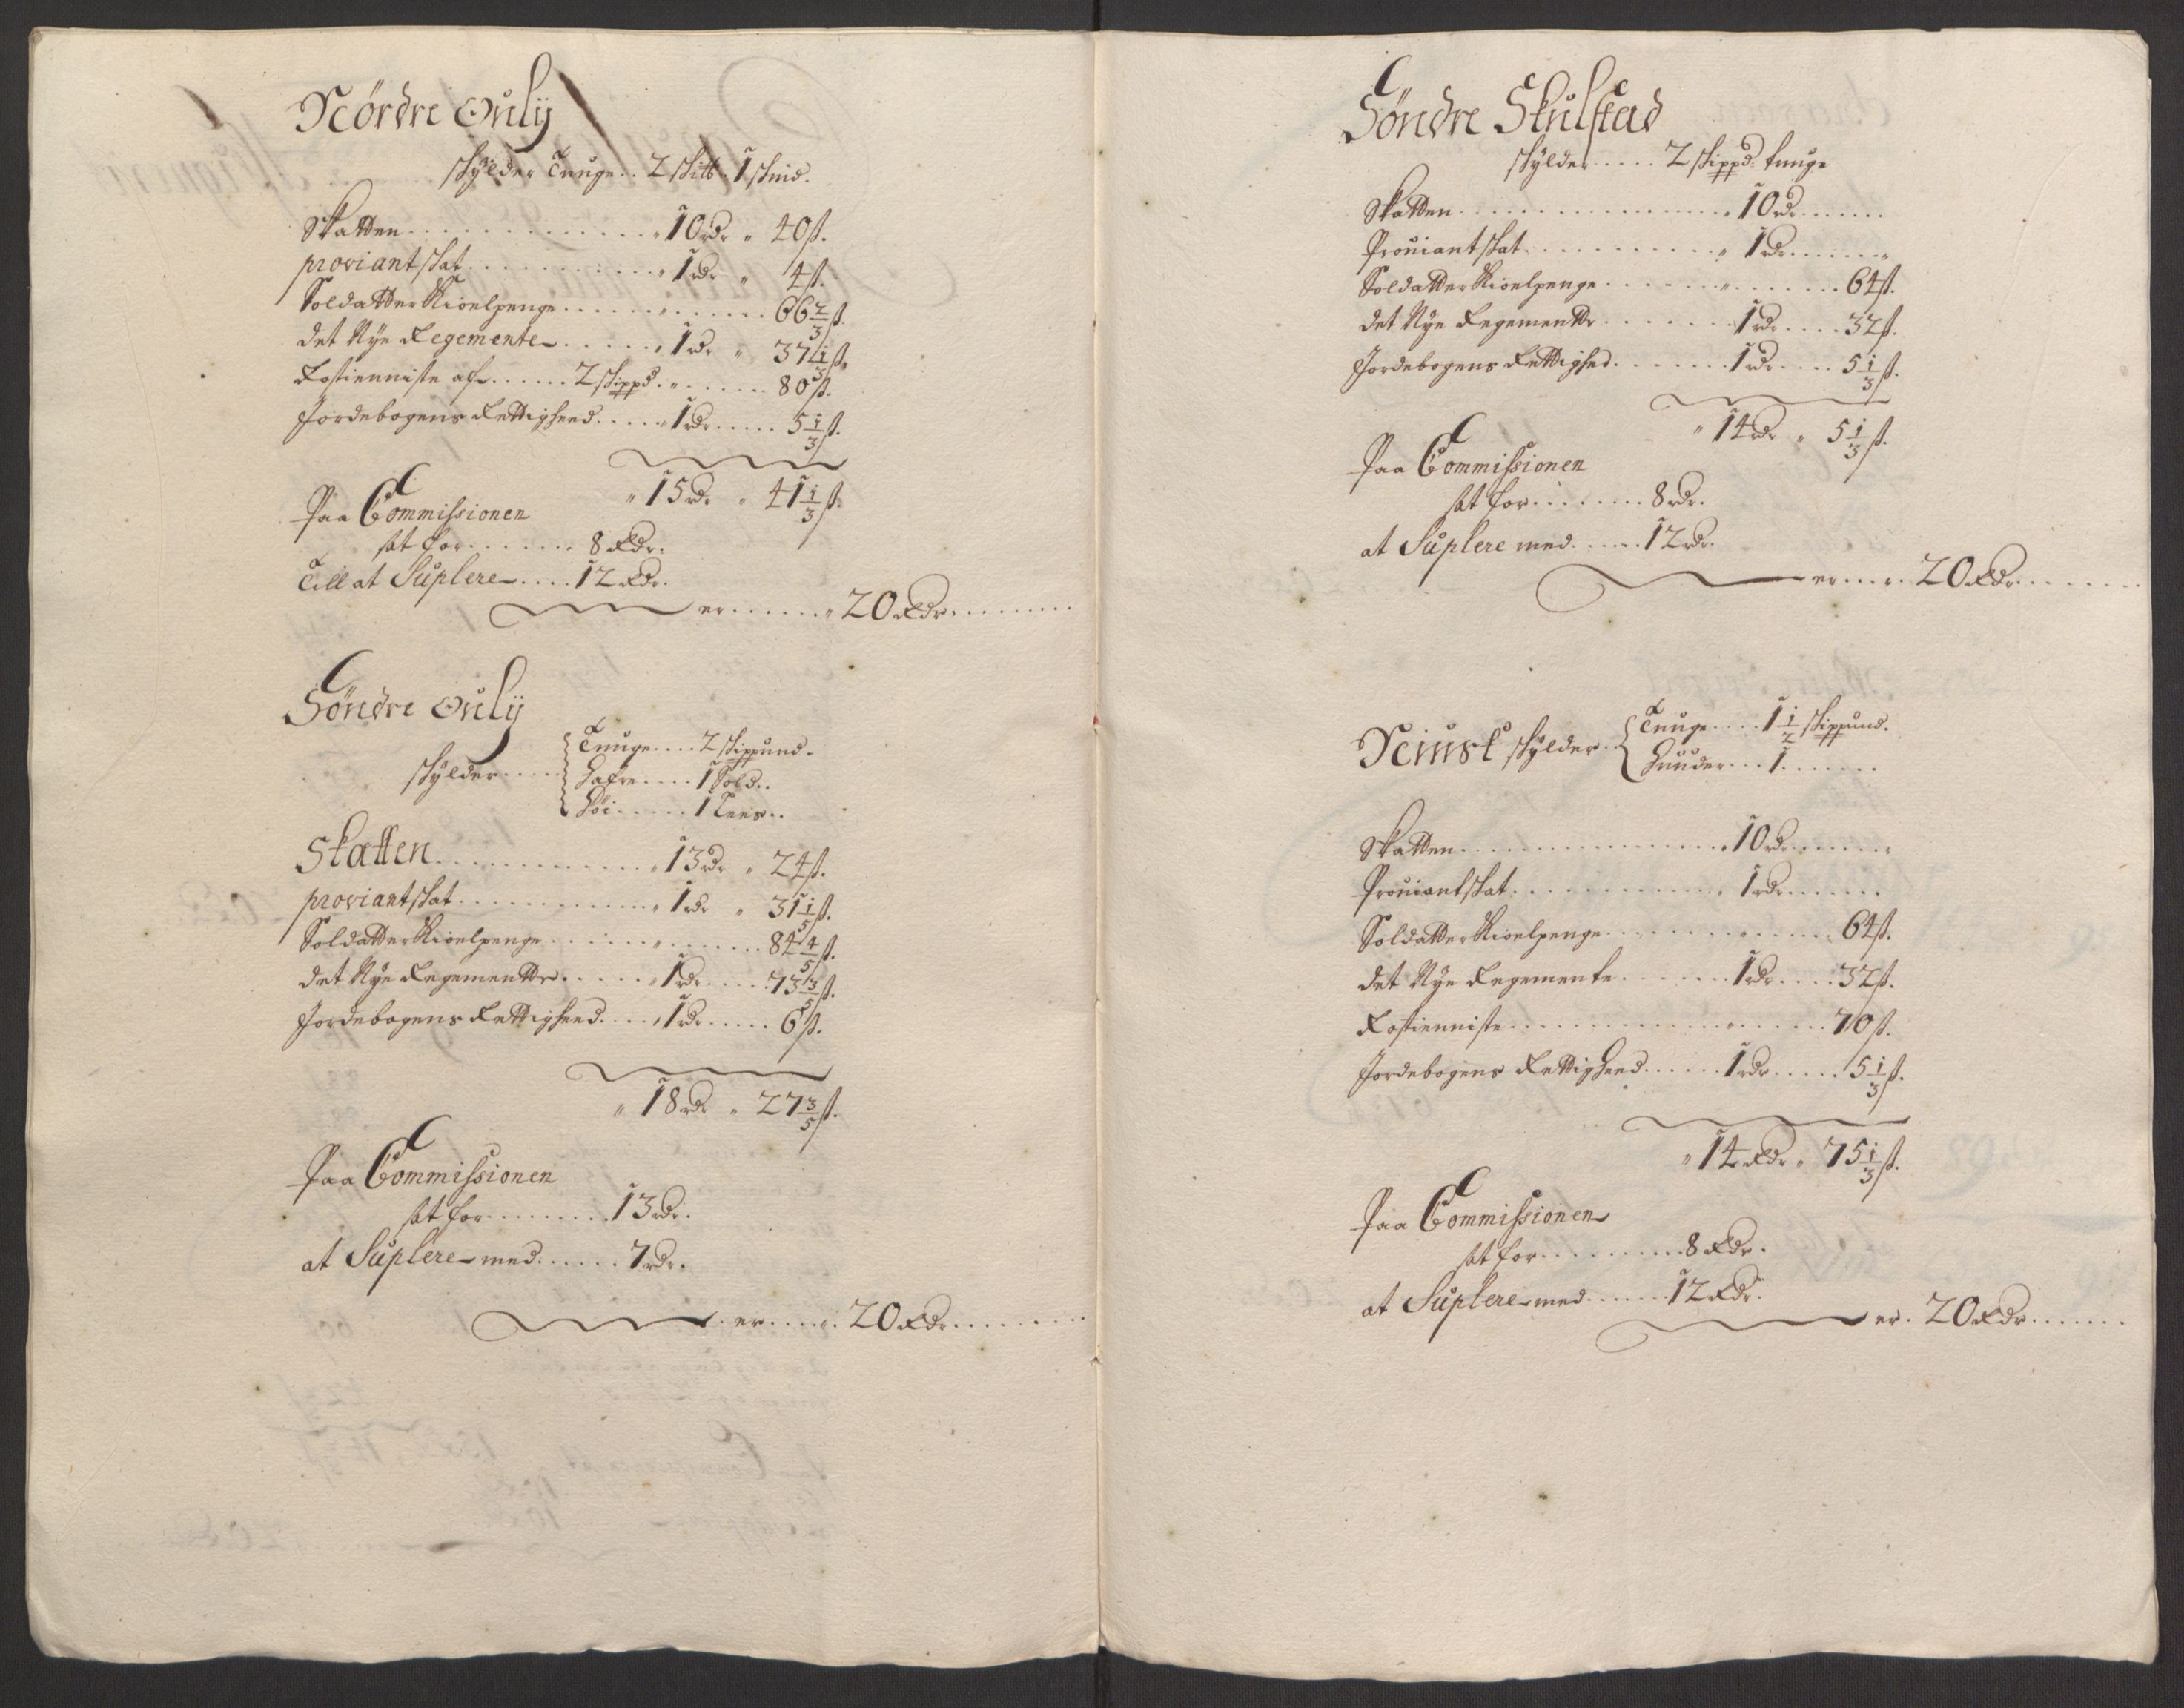 Nördre Ouly
skylder Tunge.. 2 skitt. 1 skind.
Skatten ............ 10 rdr " 40 ß.
proviantskat .......... 1 rdr " 4 ß.
Soldatter Kioelpenge ........... 66 2/3 ß.
det Nye Regemente ..... 1 rdr " 37 1/3 ß.
Rostienniste af ...... 2 skippd. ....... 80 ß.
Jordebogens Rettigheed ..... 1 rdr ..... 5 1/3 ß.
" 15 rdr " 41 1/3 ß.
Paa Commissionen
sat for ....... 8 Rdr.
Till at Suplere .... 12 Rdr.
er ...... 20 Rdr.
Söndre Ouly
skylder ....
Tunge .... 2 skippund.
Hafre .... 1 Sold..
Höi ..... 1 Lees..
Skatten ............ 13 rdr " 24 ß.
proviantskat ........... 1 rdr " 31 1/5 ß.
Soldatter Kioelpenge ........... 84 4/5 ß.
det Nye Regementte ..... 1 rdr .... 73 3/5 ß.
Jordebogens Rettigheed .... 1 rdr ..... 6 ß.
" 18 rdr " 27 3/5 ß.
Paa Commissionen
sat for ........ 13 rdr.
at Suplere med ...... 7 rdr.
er ..... 20 Rdr.
Söndre Skulstad
skylder ..... 2 skippd. tunge
Skatten ............... 10 rdr.
Prouiantskat .......... 1 rdr.
Soldatter Kioelpenge ............ 64 ß.
det Nye Regementte ....... 1 rdr .... 32 ß.
Jordebogens Rettighed ....... 1 rdr .... 5 1/3 ß.
" 14 rdr " 5 1/3 ß.
Paa Commissionen
sat for ....... 8 rdr.
at Suplere med ..... 12 rdr.
er .... 20 Rdr.
skylder ..
Tunge .... 1 1/2 skippund.
Huuder ... 1 .......
Skatten ............... 10 rdr.
Prouiantskat ............ 1 rdr.
Soldatter Kioelpenge ............ 64 ß.
det Nye Regemente ...... 1 rdr .... 32 ß.
Rostienniste ................ 70 ß.
Jordebogens Rettigheed ...... 1 rdr ..... 5 1/3 ß.
" 14 Rdr " 75 1/3 ß.
Paa Commissionen
sat for ......... 8 Rdr.
at Suplere med ...... 12 Rdr.
er . 20 Rdr.